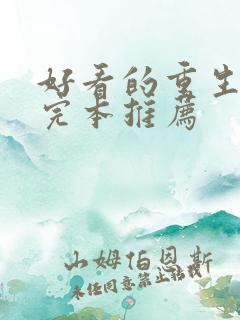 好看的重生
完本推薦
山姆伯恩斯
未经同意禁止转载